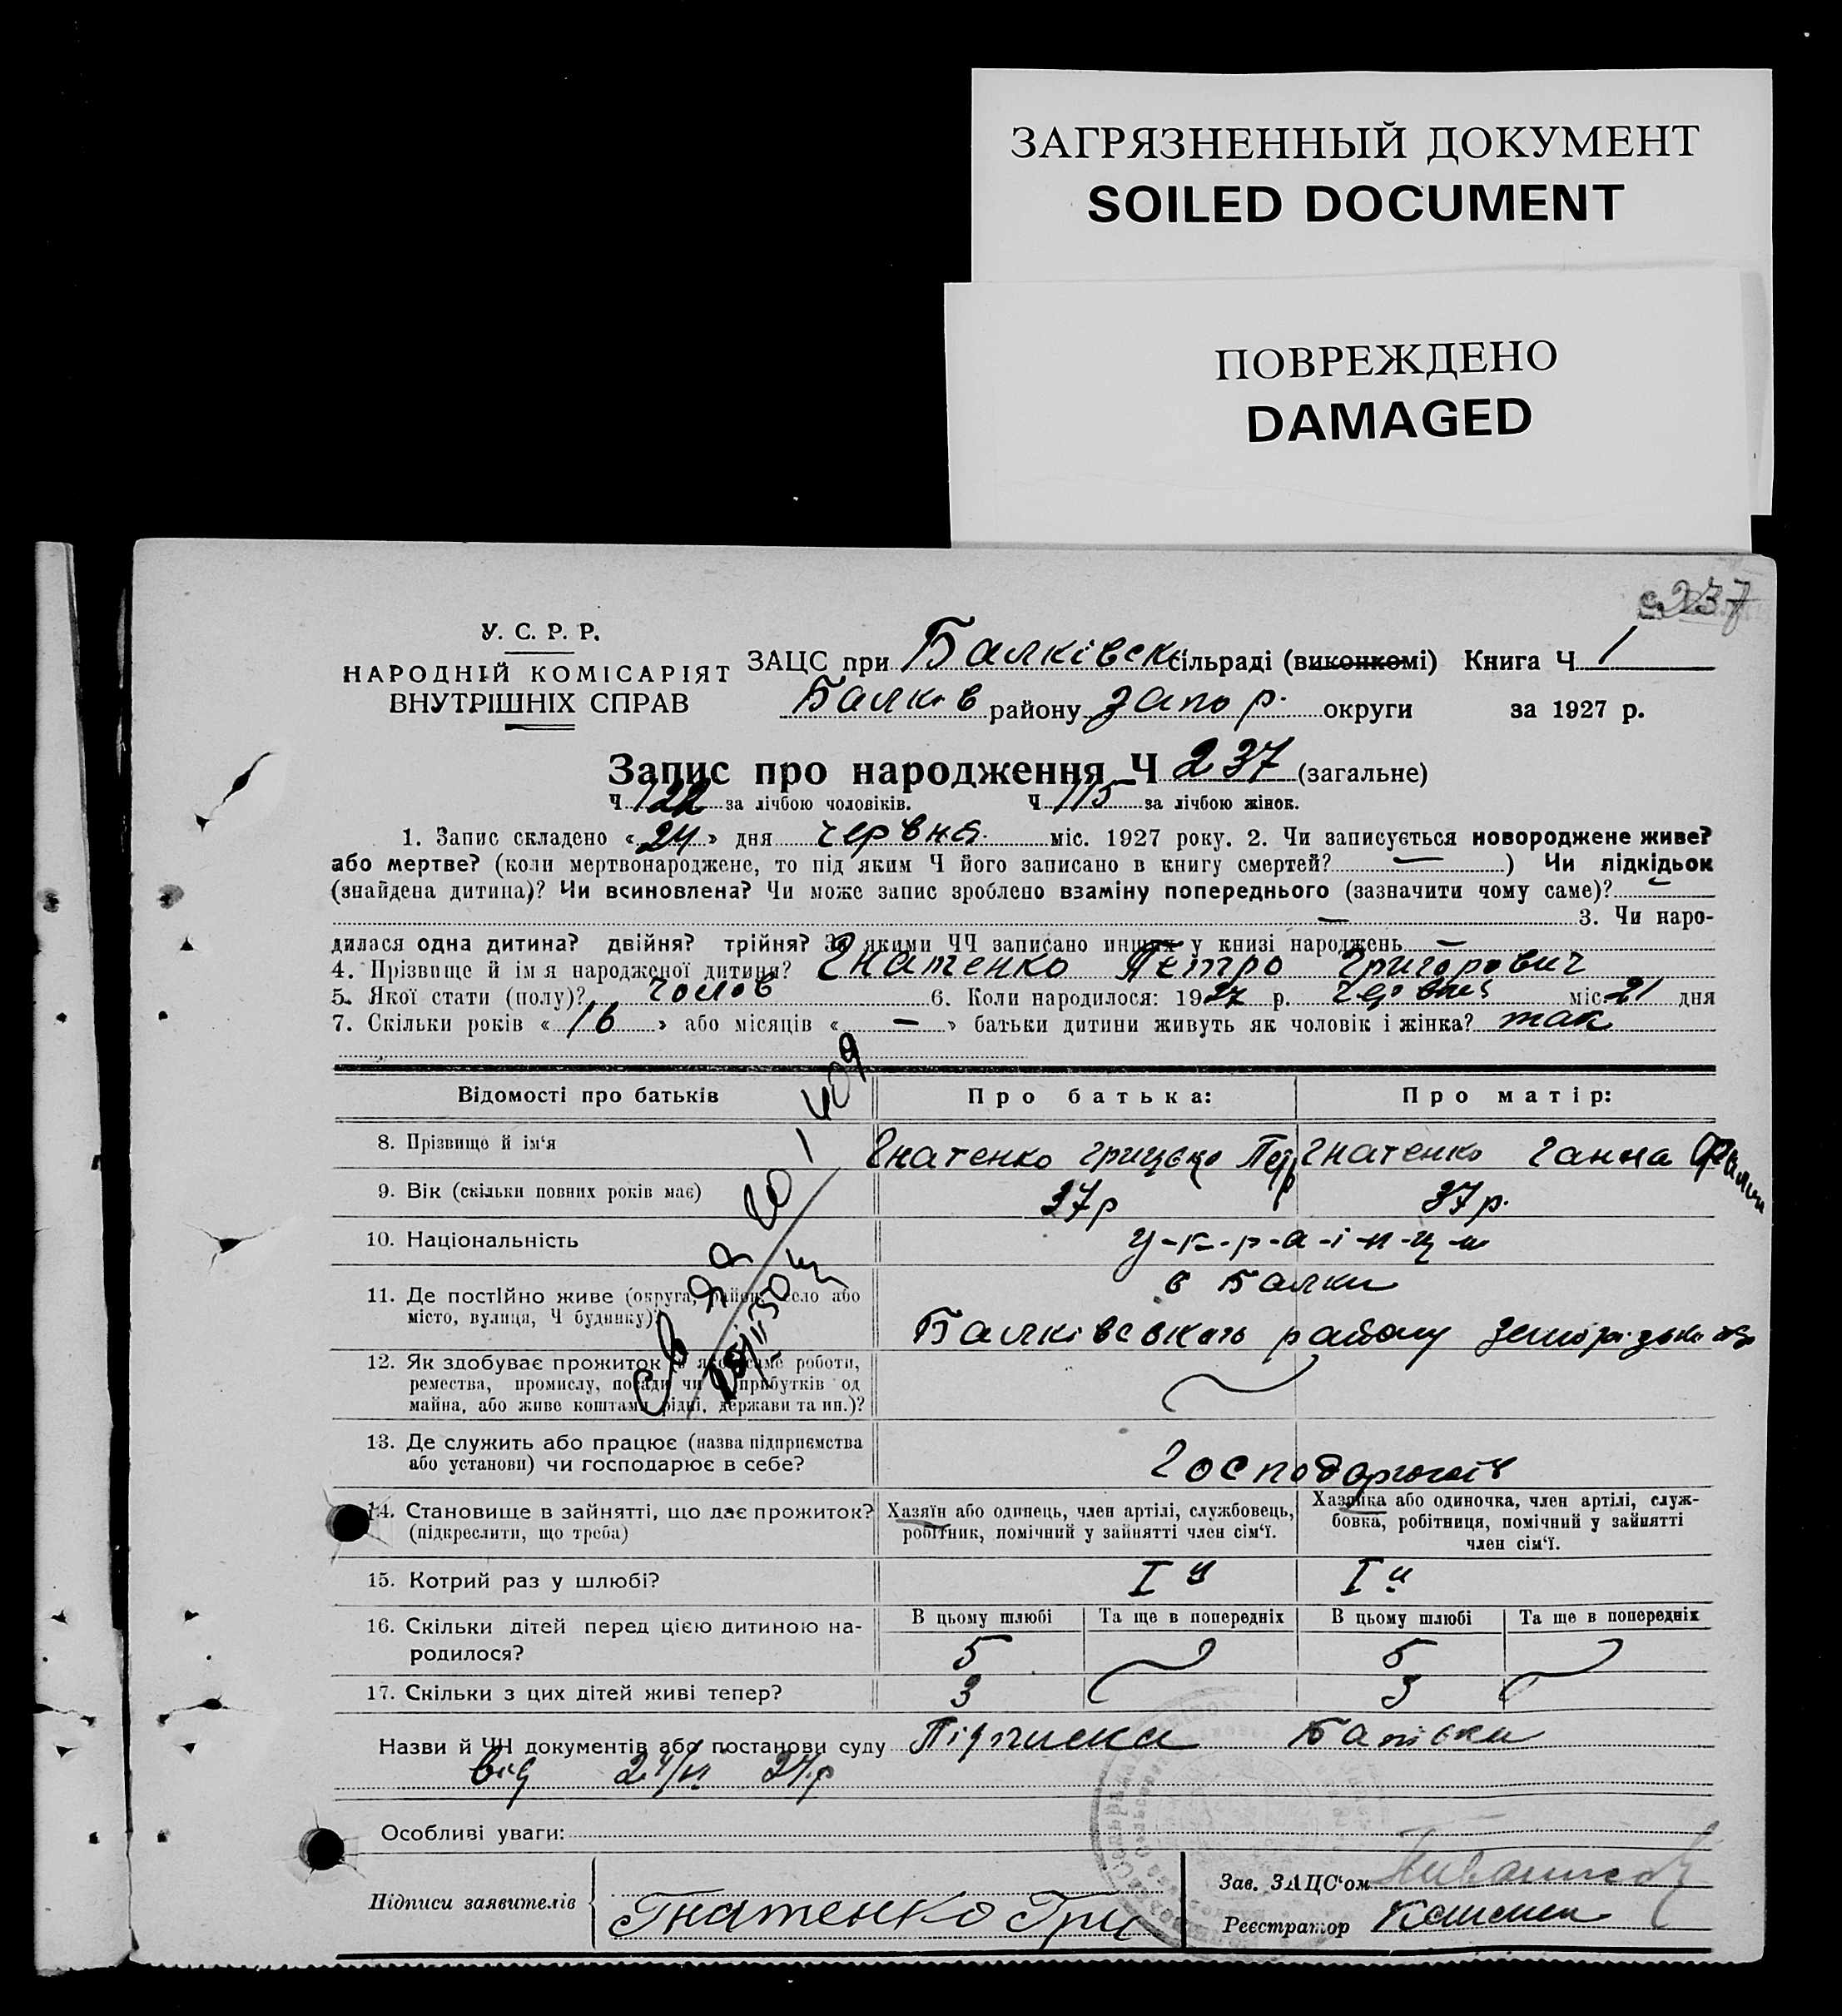 ЗАГРЯЗНЕННЫЙ ДОКУМЕНТ
SOILED DOCUMENT
ПОВРЕЖДЕНО
DAMAGED
237
У. С. Р. Р.
НАРОДНІЙ КОМІСАРІЯТ
ВНУТРІШНІХ СПРАВ
ЗАЦС при Балківськ сільраді (виконкомі) Книга Ч 1
Балків району Запор. округи за 1927 р.
Запис про народження Ч 237 (загальне)
Ч 122 за лічбою чоловіків. Ч 115 за лічбою жінок.
1. Запис складено « 24 » дня червня міс. 1927 року. 2. Чи записується новороджене живе?
або мертве? (коли мертвонароджене, то під яким Ч його записано в книгу смертей? — ) Чи підкідьок
(знайдена дитина)? Чи всиновлена? Чи може запис зроблено взаміну попереднього (зазначити чому саме)? —
— 3. Чи наро-
дилася одна дитина? двійня? трійня? За якими ЧЧ записано инших у книзі народжень —
4. Прізвище й ім я народженої дитини? Гнатенко Петро Григорович
5. Якої стати (полу)? чолов 6. Коли народилося: 1927 р. червня міс. 21 дня
7. Скільки років « 16 » або місяців « — » батьки дитини живуть як чоловік і жінка? так
Відомості про батьків Про батька: Про матір:
8. Прізвищо й ім‘я Гнатенко Грицько Петр Гнатенко Ганна
9. Вік (скільки повних років має) 37р 37р.
10. Національність у-к-р-а-і-н-ц-и
11. Де постійно живе (округа, район, село або
місто, вулиця, Ч будинку)? с Балки
Балківського району
12. Як здобуває прожиток (з якої саме роботи,
ремества, промислу, посади чи прибутків од
майна, або живе коштами рідні, держави та ин.)?
13. Де служить або працює (назва підприємства
або установи) чи господарює в себе?
14. Становище в зайнятті, що дає прожиток?
(підкреслити, що треба)
Хазяїн або одинець, член артілі, службовець,
робітник, помічний у зайнятті член сім‘ї.
Хазяйка або одиночка, член артілі, служ-
бовка, робітниця, помічний у зайнятті
член сім‘ї.
15. Котрий раз у шлюбі? I й I й
16. Скільки дітей перед цією дитиною на-
родилося?
В цьому шлюбі Та ще в попередніх В цьому шлюбі Та ще в попередніх
5 5
17. Скільки з цих дітей живі тепер? 3 3
Назви й ЧЧ документів або постанови суду Підписка Батька
від
Особливі уваги:
Підписи заявителів Гнатенко Гри
Зав. ЗАЦС‘ом
Реєстратор